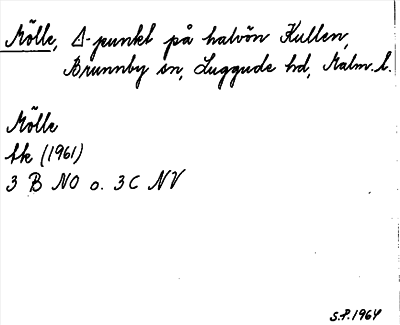 Mölle, Δ-punkt på halvön Kullen,
Brunnby sn, Luggude hd, Malm. l.
Mölle
tk (1961)
3 B NO o. 3 C NV
S.P. 1964